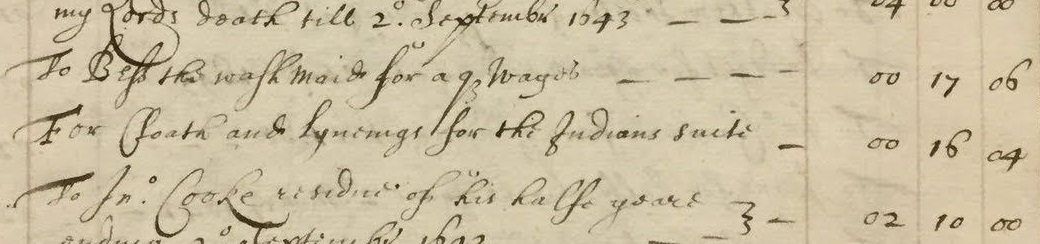 my Lords death till 2º September 1643 — — — 04 00 00
To Bess the washmaide for a qr wages — — — — 00 17 06
For Cloath and Lyneings for the Indians suite — 00 16 04
To Jnº. Cooke residue of his halfe yeare — 02 10 00
ending 2º September 1643